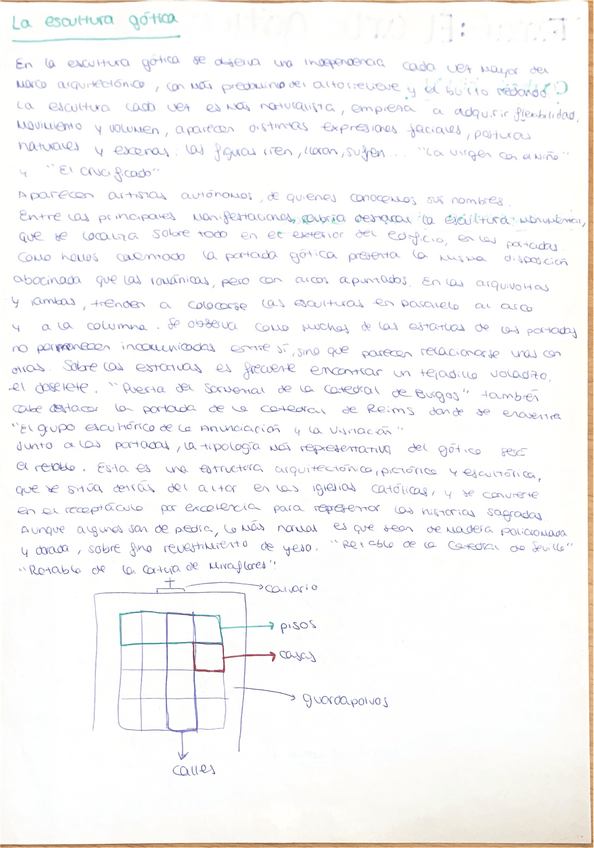 La escultura gótica
En la escultura gótica se observa una independencia cada vez mayor del
marco arquitectónico, con más predominio del altorrelieve y el bulto redondo
La escultura cada vez es más naturalista, empieza a adquirir flexibilidad,
movimiento y volumen, aparecen distintas expresiones faciales, posturas
naturales y escenas. Las figuras ríen, lloran, sufren... "La virgen con el niño"
y "El crucificado"
Aparecen artistas autónomos, de quienes conocemos sus nombres.
Entre las principales manifestaciones, cabría destacar la escultura monumental,
que se localiza sobre todo en el exterior del edificio, en las portadas
Como hemos comentado la portada gótica presenta la misma disposición
abocinada que las románicas, pero con arcos apuntados. En las arquivoltas
y jambas, tienden a colocarse las esculturas en paralelo al arco
y a la columna. Se observa como muchas de las estatuas de las portadas
no permanecen incomunicadas entre sí, sino que parecen relacionarse unas con
otras. Sobre las estatuas es frecuente encontrar un tejadillo voladito,
el doselete. "Puerta del Sarmental de la Catedral de Burgos" también
cabe destacar la portada de la Catedral de Reims donde se encuentra
"El grupo escultórico de la Anunciación y la Visitación"
Junto a las portadas, la tipología más representativa del gótico será
el retablo. Esta es una estructura arquitectónica, pictórica y escultórica,
que se sitúa detrás del altar en las iglesias católicas, y se convierte
en el receptáculo por excelencia para representar las historias sagradas
Aunque algunos son de piedra, lo más normal es que sean de madera policromada
y dorada, sobre fino revestimiento de yeso. "Retablo de la Catedral de Sevilla"
"Retablo de la Cartuja de Miraflores"
calvario
pisos
casas
guardapolvos
calles